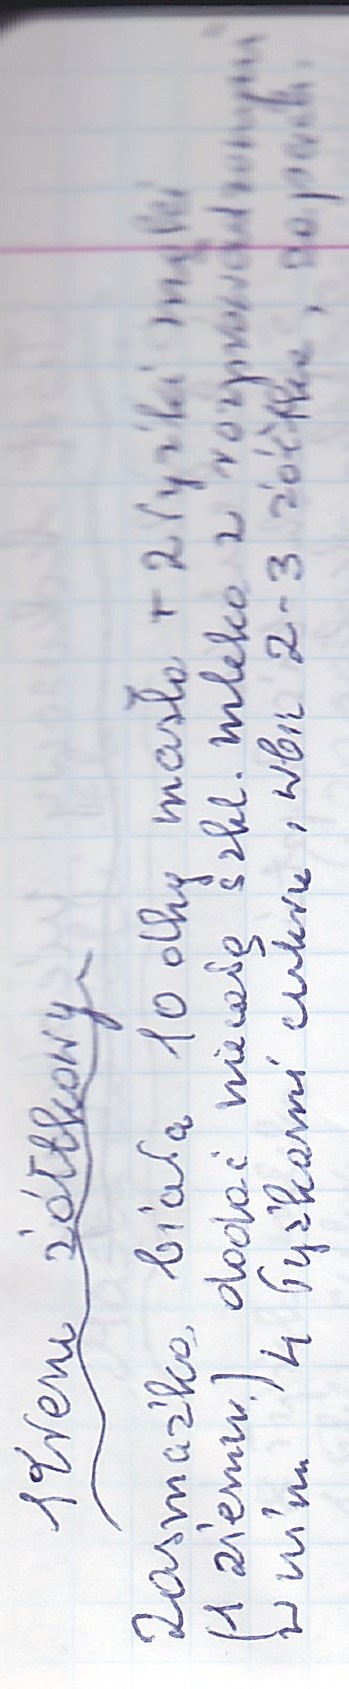 Krem żółtkowy
Zasmażka biała 10 dkg masła + 2 łyżki mąki
(1 ziemn.) dodać niecałą szkl. mleka z rozprowadzonymi
w nim 4 łyżkami cukru, wbić 2-3 żółtka, zapach.